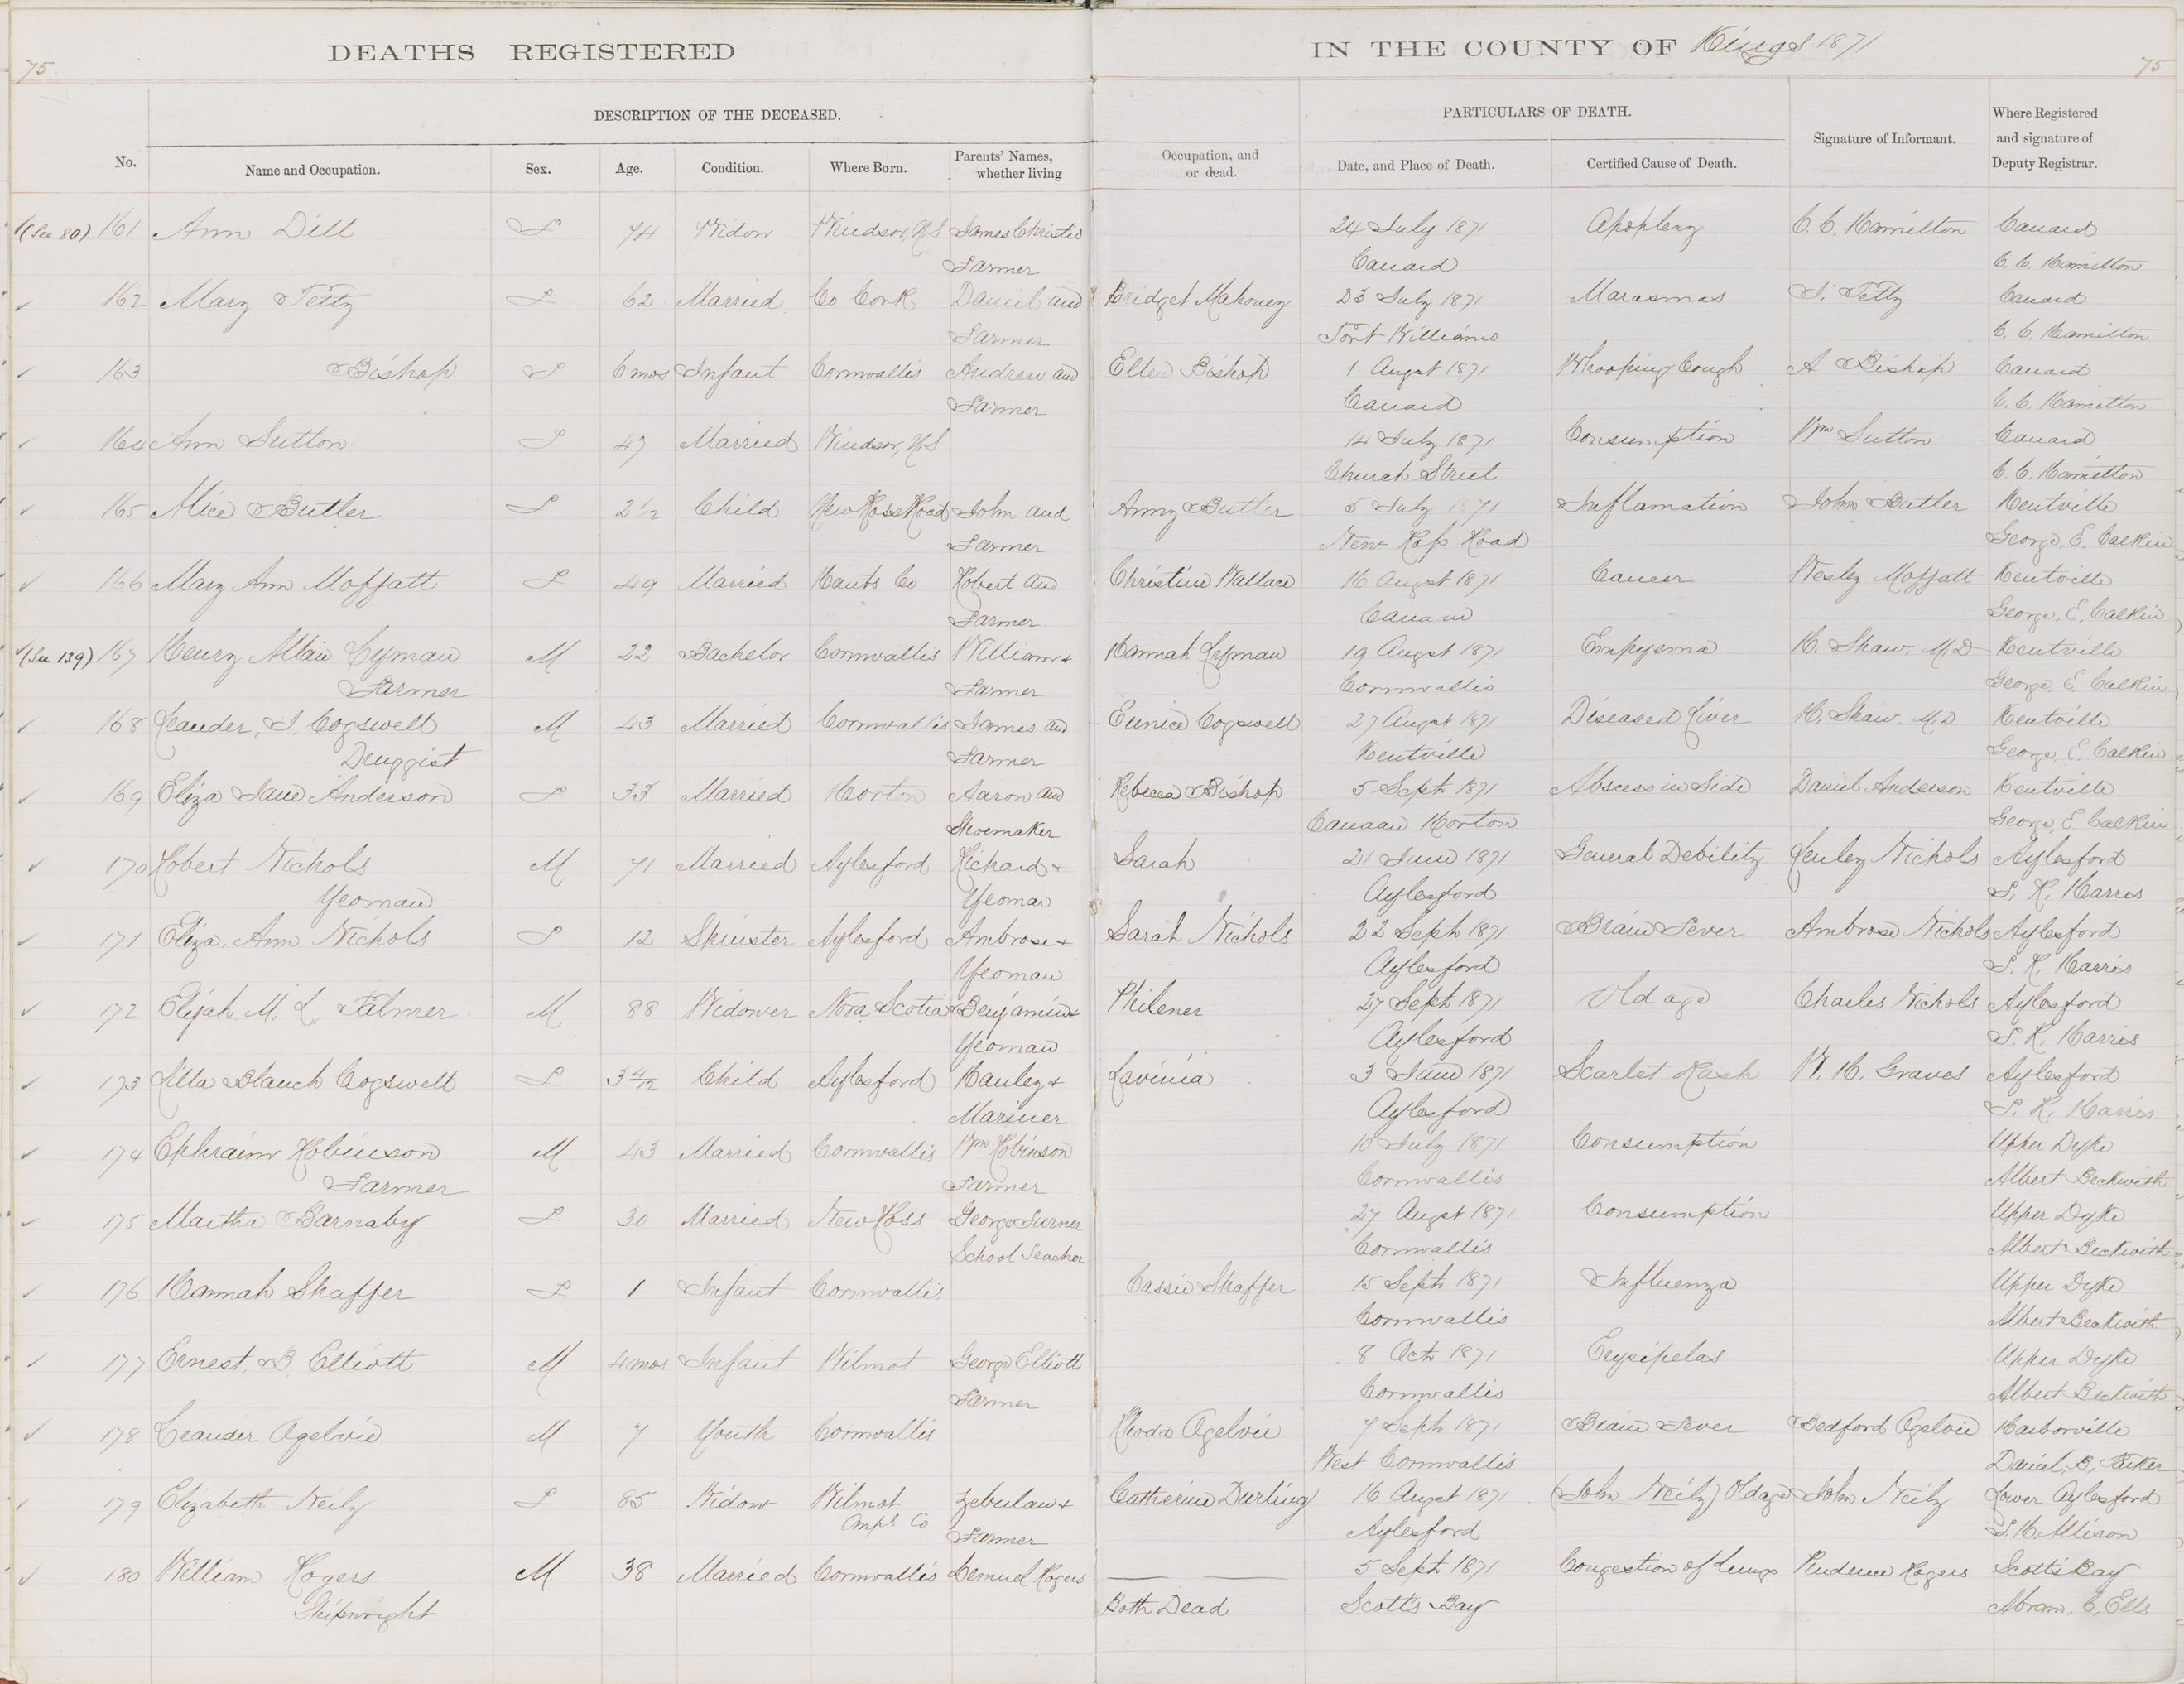 75 DEATHS REGISTERED IN THE COUNTY OF Kings 1871 75
DESCRIPTION OF THE DECEASED. PARTICULARS OF DEATH. Where Registered
Signature of Informant. and signature of
No. Name and Occupation. Sex. Age. Condition. Where Born. Parents' Names, Occupation, and Date, and Place of Death. Certified Cause of Death. Deputy Registrar.
whether living or dead.
(See 80) 161 Ann Dill F 74 Widow Windsor, N.S James Christie 24 July 1871 Apoplexy C. C. Hamilton Canard
Farmer Canard C. C. Hamilton
162 Mary Tetty F 62 Married Co Cork Daniel and Bridget Mahoney 23 July 1871 Marasmas Tetty Canard
Farmer Port Williams C. C. Hamilton
163 Bishop F 6 mos Infant Cornwallis Andrew and Ellen Bishop 1 Augst 1871 Whooping Cough A Bishop Canard
Farmer Canard C. C. Hamilton
164 Ann Sutton F 47 Married Windsor, N.S 14 July 1871 Consumption Wm Sutton Canard
Church Street C. C. Hamilton
165 Alice Butler F 2 1/12 Child New Ross Road John and Anny Butler 5 July 1871 Inflamation John Butler Kentville
Farmer New Ross Road George. E. Calkin
166 Mary Ann Moffatt F 49 Married Hants Co Robert and Christine Wallace 16 Augst 1871 Cancer Wesley Moffatt Kentville
Farmer Canaan George. E. Calkin
(See 139) 167 Henry Allan Lyman M 22 Bachelor Cornwallis William + Hannah Lyman 19 Augst 1871 Empyema H. Shaw. M.D Kentville
Farmer Farmer Cornwallis George. E. Calkin
168 Leander. I. Cogswell M 43 Married Cornwallis James and Eunice Cogswell 27 Augst 1871 Diseased Liver H. Shaw. M.D Kentville
Druggist Farmer Kentville George. E. Calkin
169 Eliza Jane Anderson F 33 Married Horton Aaron and Rebecca Bishop 5 Sept 1871 Abscess in Side Daniel Anderson Kentville
Shoemaker Canaan Horton George. E. Calkin
170 Robert Nichols M 71 Married Aylesford Richard + Sarah 21 June 1871 General Debility Henley Nichols Aylesford
Yeoman Yeoman Aylesford S. K. Harris
171 Eliza. Ann Nichols F 12 Spinster Aylesford Ambrose + Sarah Nichols 22 Sept 1871 Brain Fever Ambrose Nichols Aylesford
Yeoman Aylesford S. K. Harris
172 Elijah. M. L. Palmer M 88 Widower Nova Scotia Benjamin + Philener 27 Sept 1871 Old age Charles Nichols Aylesford
Yeoman Aylesford S. K. Harris
173 Lilla Blanch Cogswell F 3 4/12 Child Aylesford Hanley + Lavinia 3 June 1871 Scarlet Rash W. H. Graves Aylesford
Mariner Aylesford S. K. Harris
174 Ephraim Robinson M 43 Married Cornwallis Wm Robinson 10 July 1871 Consumption Upper Dyke
Farmer Farmer Cornwallis Albert Beckwith
175 Martha Barnaby F 30 Married New Ross George Turner 27 Augst 1871 Consumption Upper Dyke
School Teacher Cornwallis Albert Beckwith
176 Hannah Shaffer F 1 Infant Cornwallis Cassie Shaffer 15 Sept 1871 Influenza Upper Dyke
Cornwallis Albert Beckwith
177 Ernest. B. Elliott M 4 mos Infant Wilmot George Elliott 8 Oct 1871 Erysipelas Upper Dyke
Farmer Cornwallis Albert Beckwith
178 Leander Ogelvie M 7 Youth Cornwallis Rhoda Ogelvie 7 Sept 1871 Brain Fever Bedford Ogelvie Harborville
West Cornwallis Daniel. B. Parker
179 Elizabeth Neily F 85 Widow Wilmot Zebulan + Catherine Durling 16 Augst 1871 (John Neily) Old age John Neily Lower Aylesford
Anps Co Farmer Aylesford S. H. Allison
180 William Rogers M 38 Married Cornwallis Lemuel Rogers 5 Sept 1871 Congestion of Lungs Prudence Rogers Scotts Bay
Shipwright Both Dead Scotts Bay Abram. C. Ells